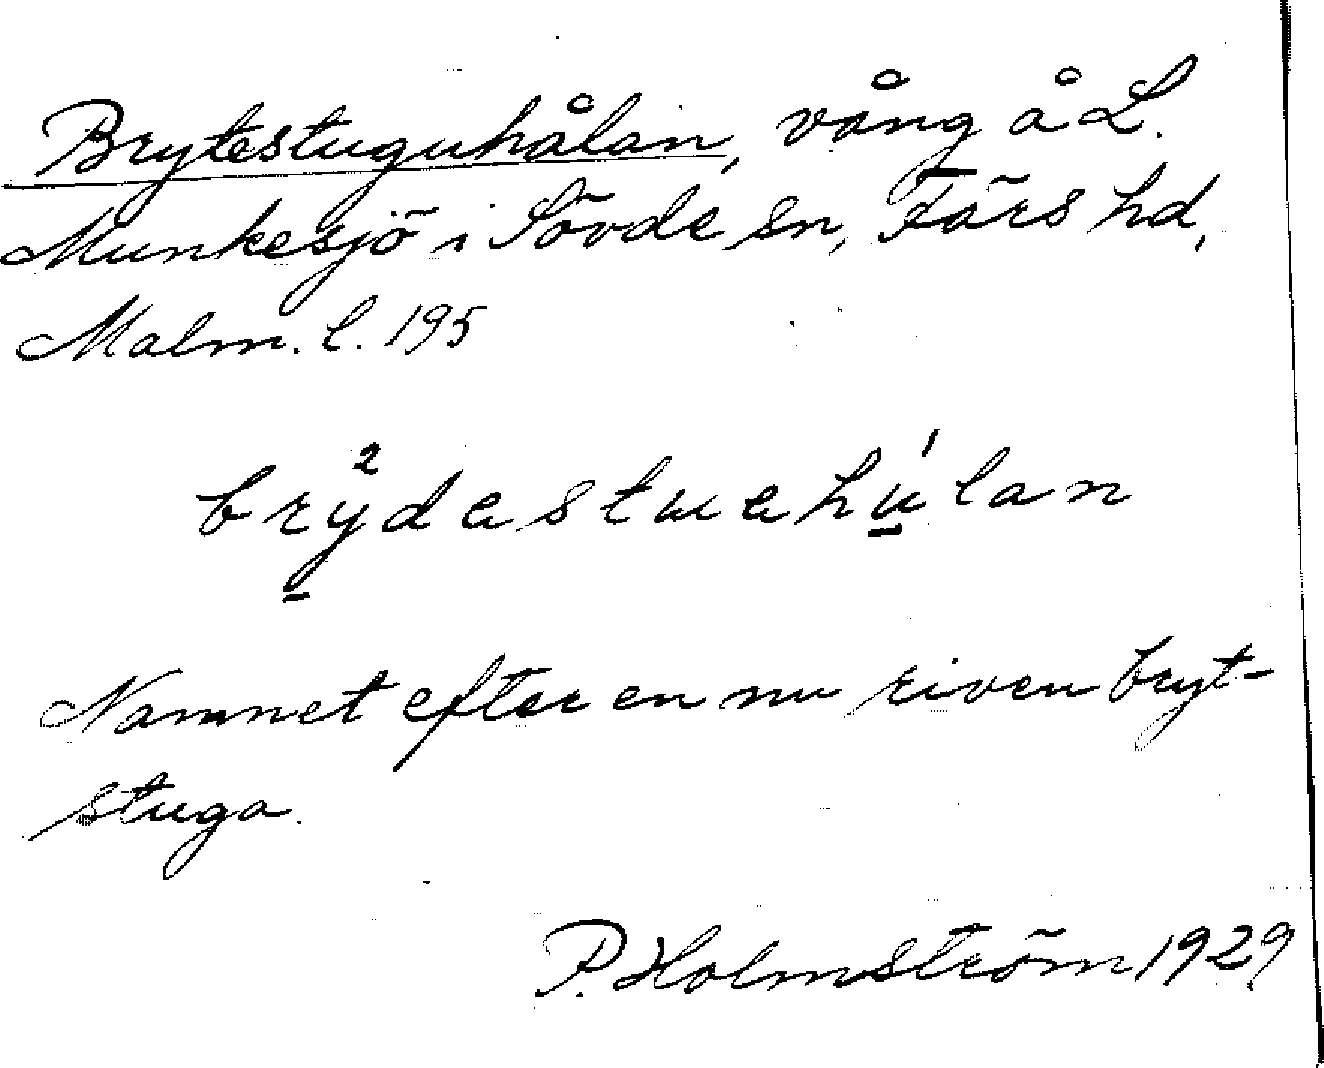 Brytestuguhålan, vång å L.
Munkesjö i Sövde sn, Färs hd,
Malm. l. 195
brÿ²dastuahu̱´lan
Namnet efter en nu riven bryt-
stuga.
P. Holmström 1929